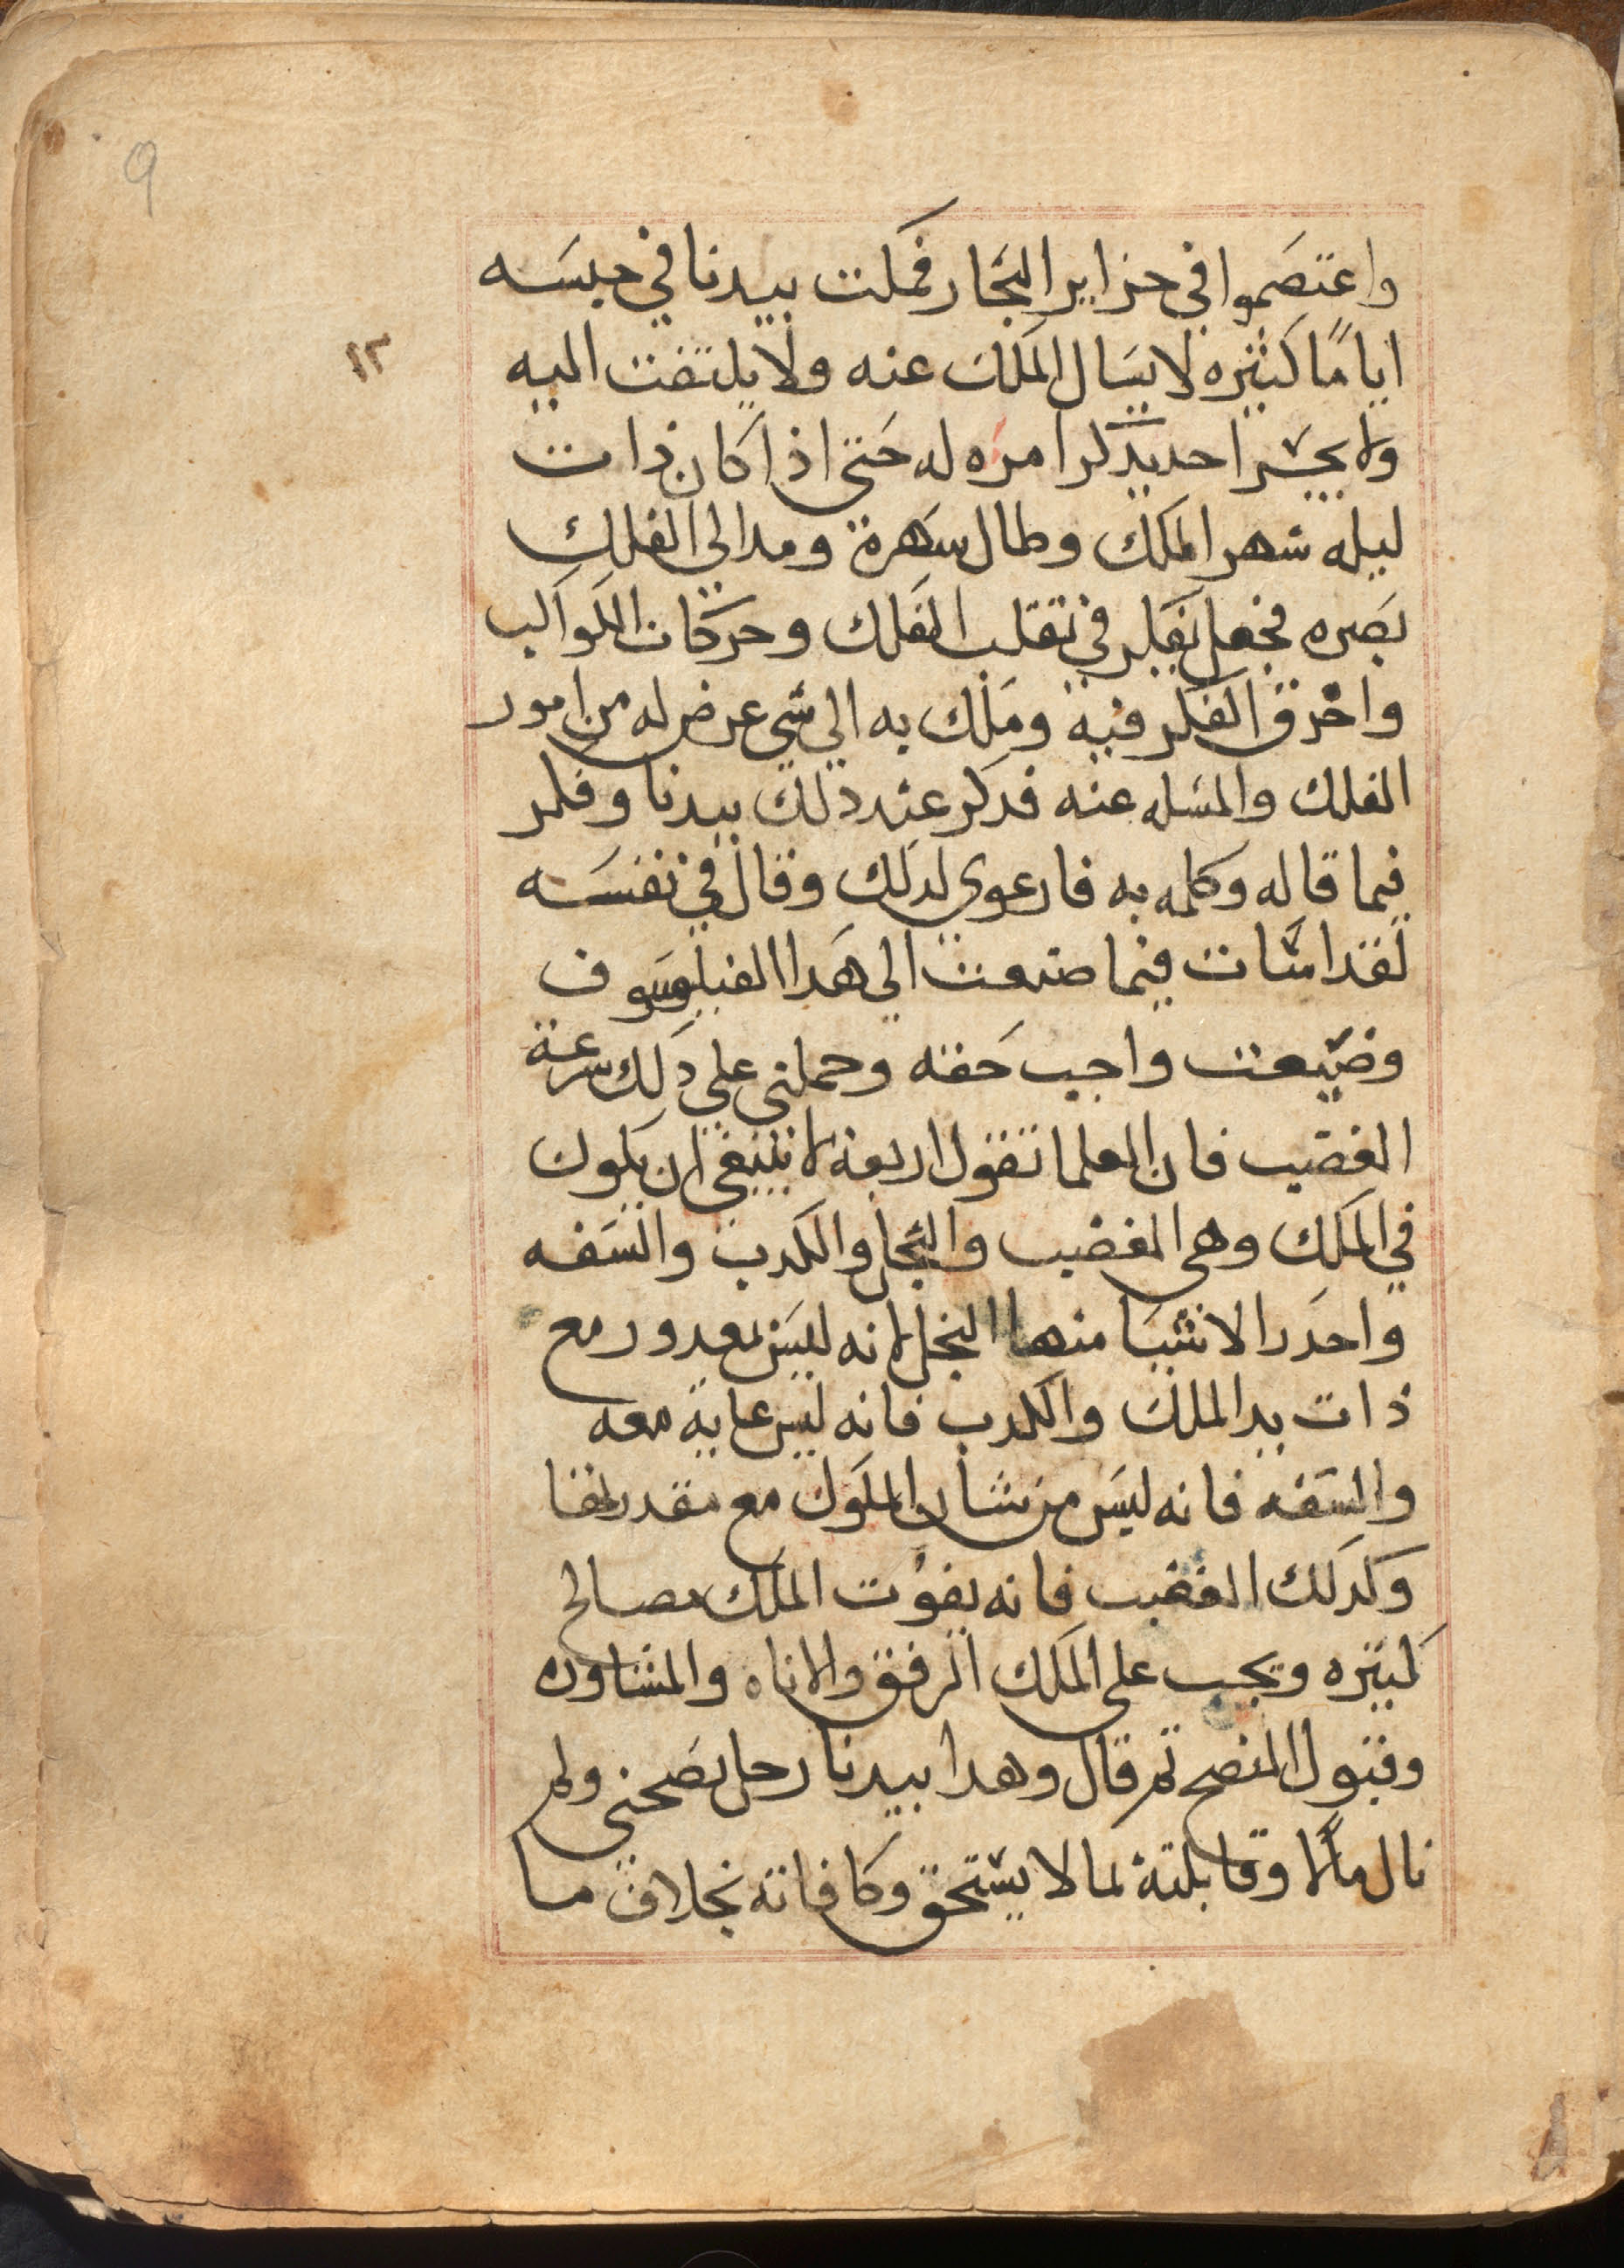 9
١٢
واعتصموا في جزاير البحار فمكت بيدنا في حبسه
اياما كثيره لا يسال الملك عنه ولا يلتفت اليه
ولا يجسر احد يدكر امره له حتى اذا كان ذات
ليله شهر الملك وطال سهرة ومد الي الفلك
بصره فجعل تفكر في تقلب الفلك وحركات الكواكب
واخرق الفكر فيه وملك به الي شي عرض له من امور
الفلك والمسله عنه فدكر عند دلك بيدنا وفكر
فيما قاله وكلمه به فارعوي لدلك وقال في نفسه
لقد اسات فيما صنعت الي هدا الفيلوسوف
وضيعت واجب حقه وحملني علي دلك سرعة
الغضب فان العلما تقول اربعة لا ينبغي ان يكون
في الملك وهي الغضب والبخل والكدب والسفه
واحدر الاشيا منها البخل لانه ليس بمعدور مع
ذات يد الملك والكدب فانه ليس عايه معه
والسفه فانه ليس من شان الملوك مع مقدرتها
وكدلك الغضب فانه يفوت الملك مصالح
كثيره ويجب على الملك الرفق والاناه والمشاوره
وقبول النصح تم قال وهدا بيدنا رجل نصحني ولم
نال مالا وقابلتة بما لا يستحق وكافاتة بخلاف ما